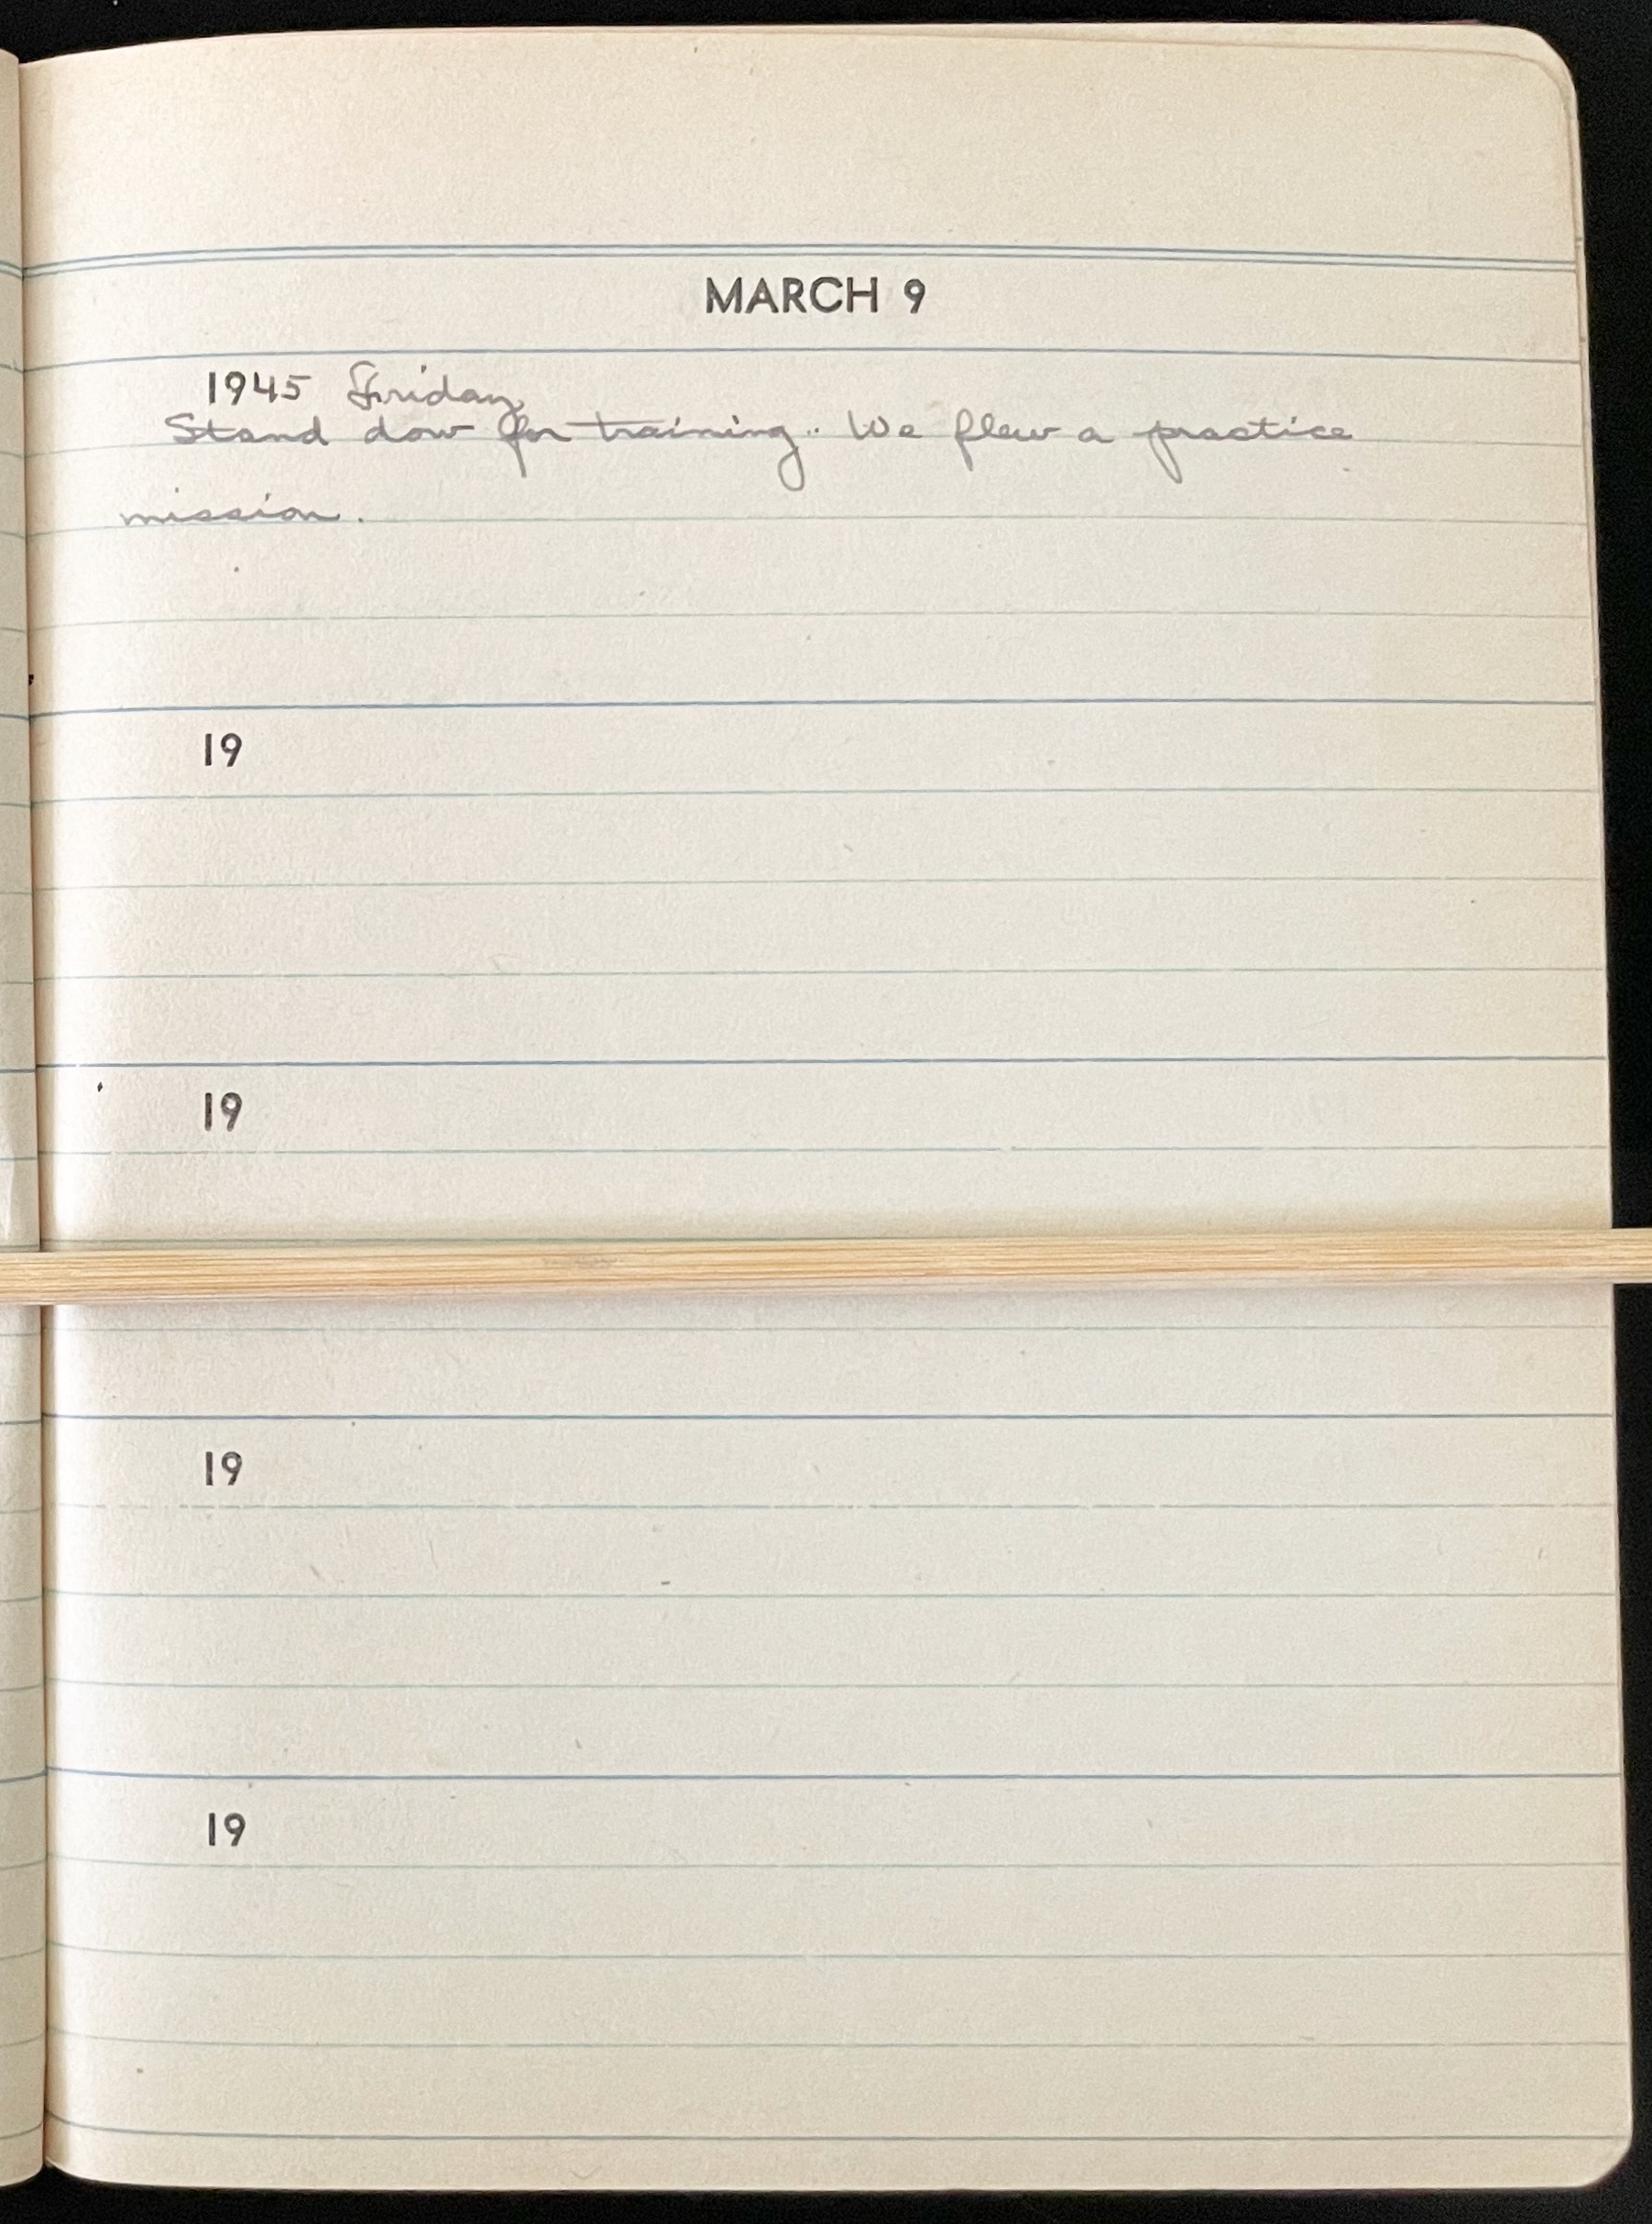 MARCH 9
1945 Friday
Stand dow for training. We flew a practice
mission.
19
19
19
19